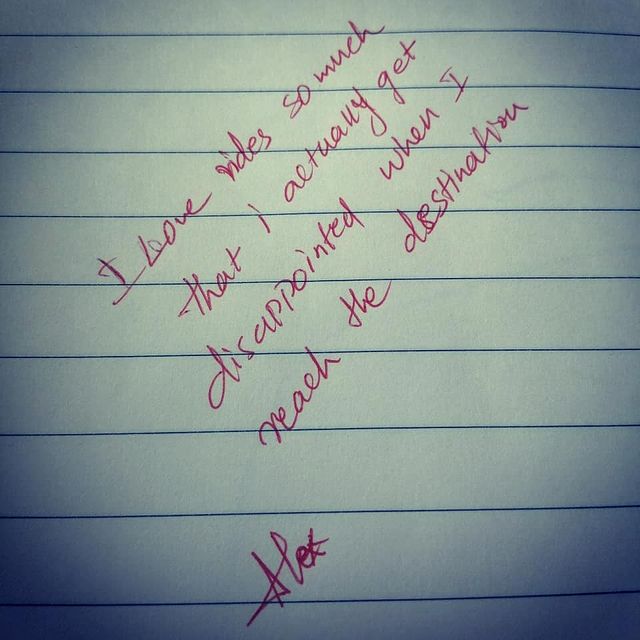 I love rides so much
that i actually get
disappointed when I
reach the destination
Alex